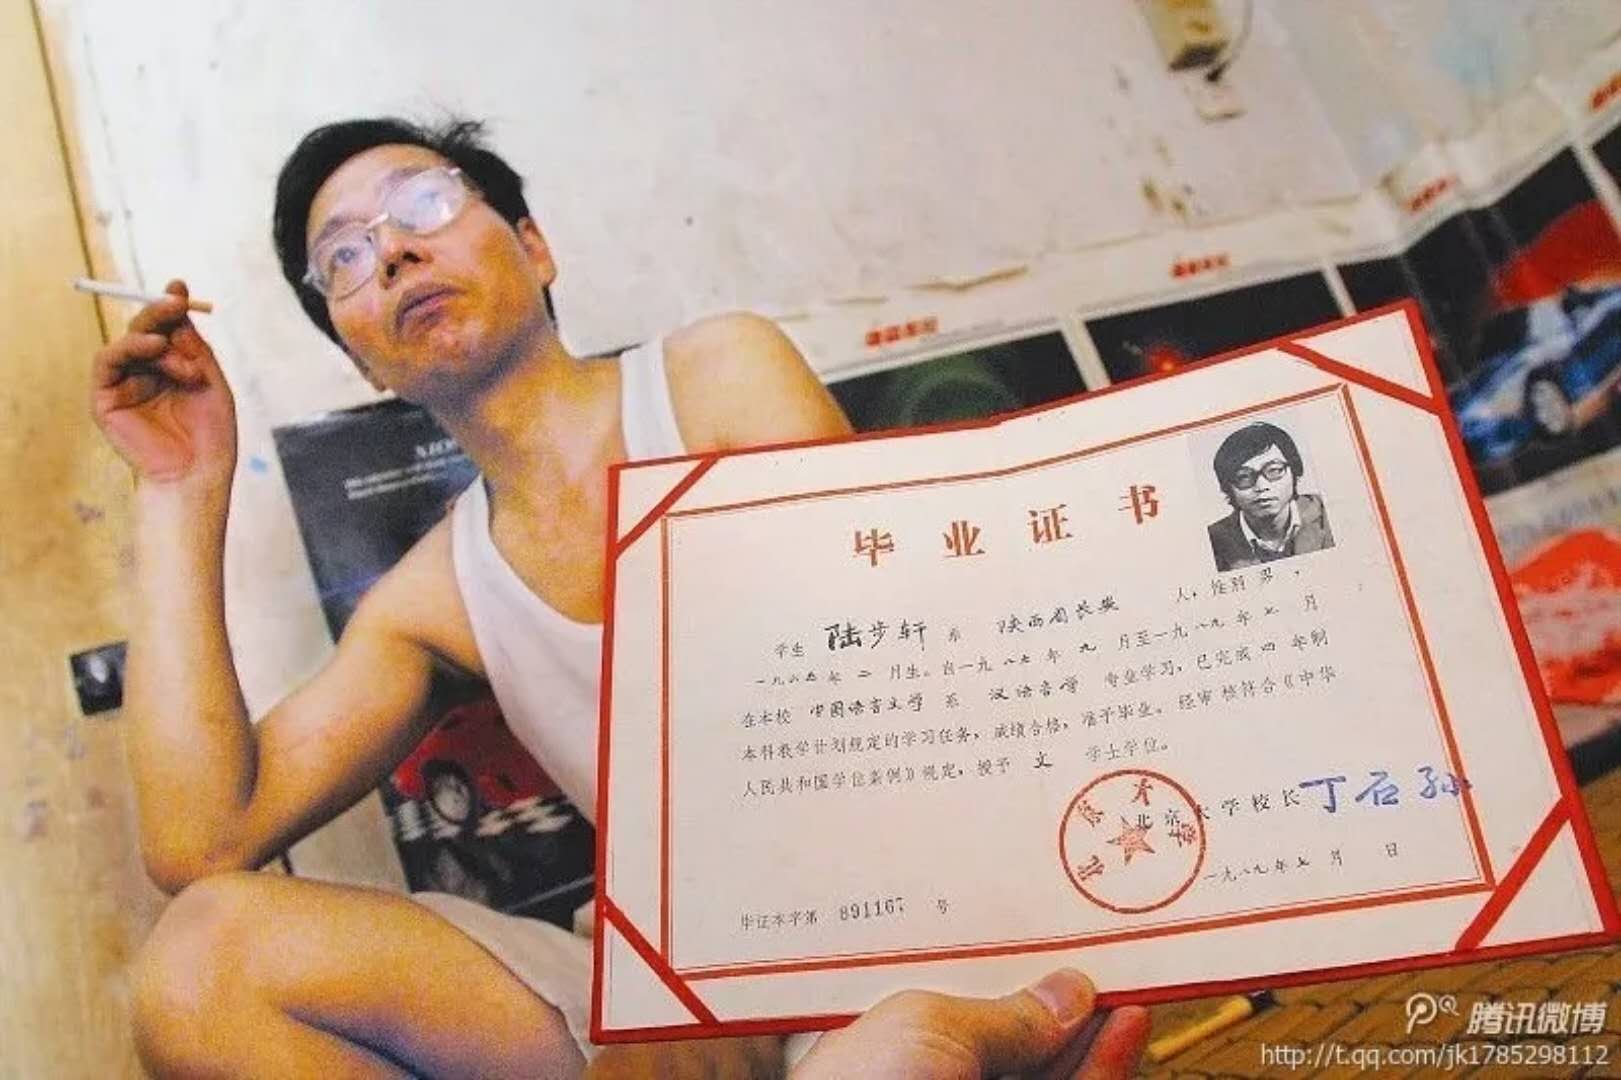 毕业证书
学生 陆步轩 系 陕西省长安 人，性别 男，
一九六五年 二 月生。自一九八五年 九 月至一九八九年 七 月
在本校 中国语言文学 系 汉语言学 专业学习，已完成 四 年制
本科教学计划规定的学习任务，成绩合格，准予毕业。经审核符合《中华
人民共和国学位条例》规定，授予 文 学士学位。
北京大学校长 丁石孙
北京大学
一九八九年七月 日
毕证本字第 891167 号
腾讯微博
http://t.qq.com/jk1785298112